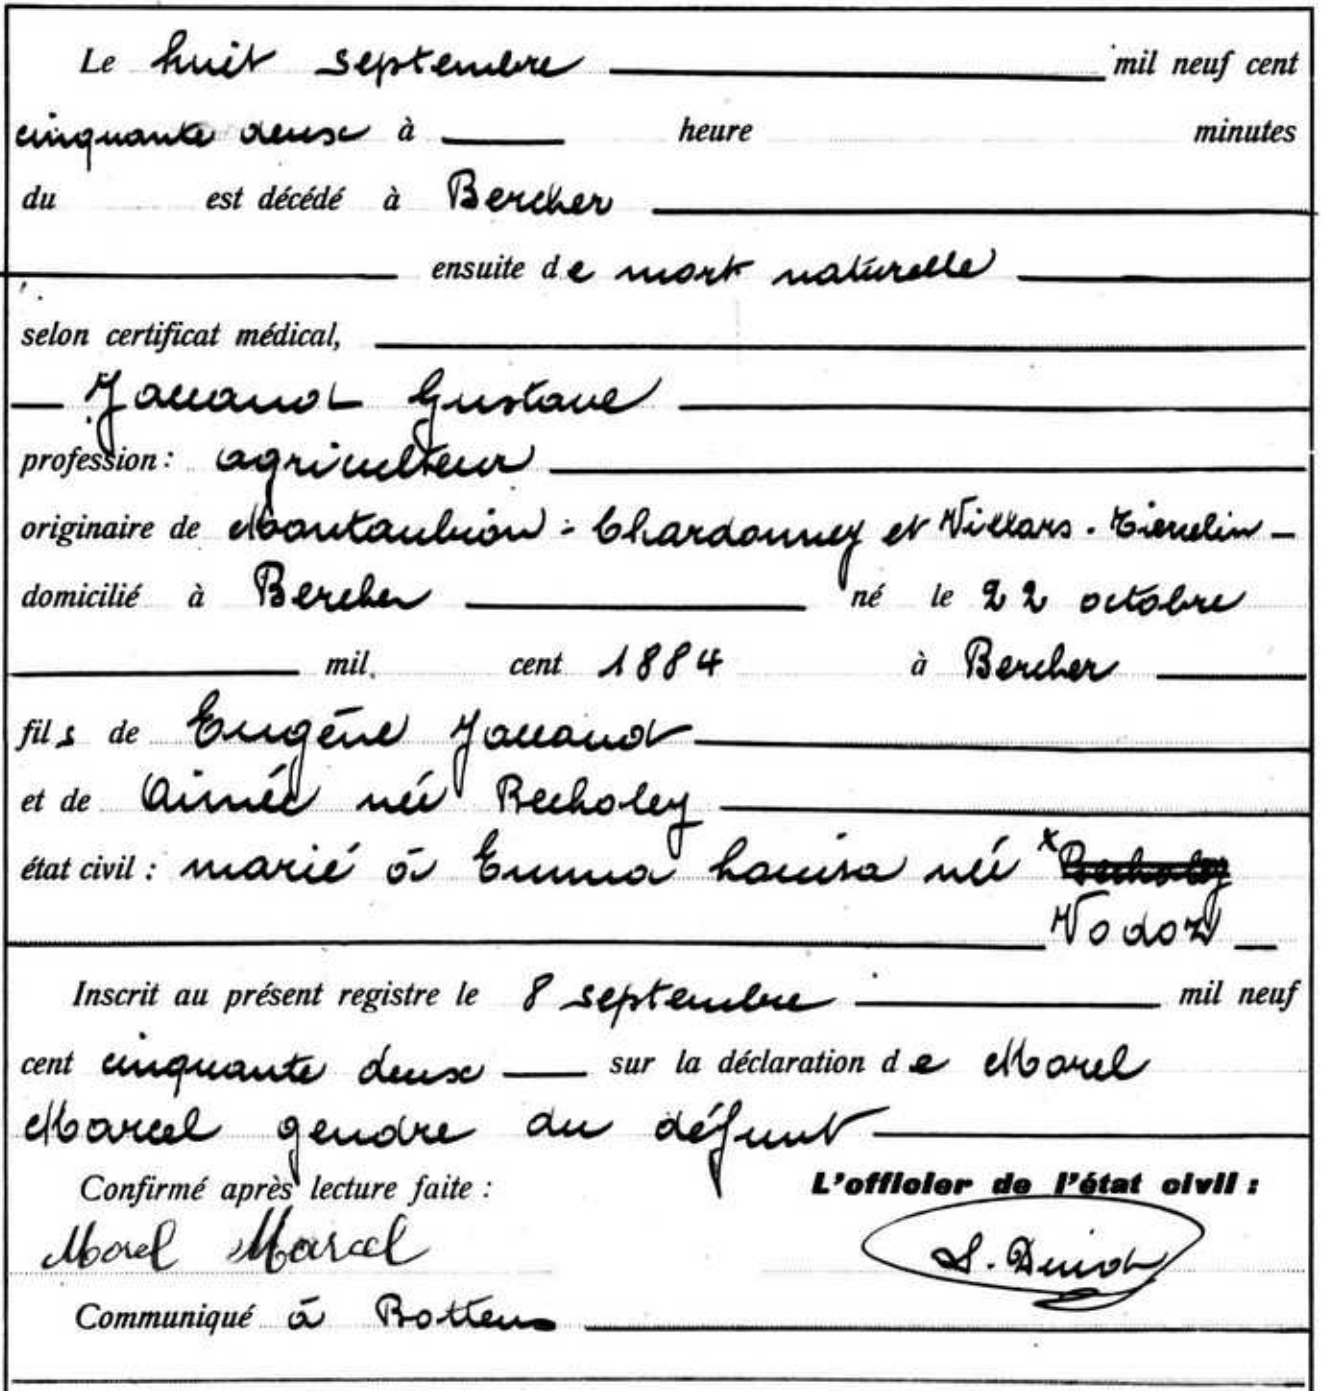 Le huit septembre mil neuf cent
cinquante deux à heure minutes
du est décédé à Bercher
ensuite de mort naturelle
selon certificat médical,
Jaccaud Gustave
profession: agriculteur
originaire de Montaubion-Chardonney et Villars-Tiercelin
domicilié à Bercher né le 22 octobre
mil cent 1884 à Bercher
fils de Eugène Jaccaud
et de Aimée née Becholey
état civil : marié à Emma Louisa née x Becholey
Vodoz
Inscrit au présent registre le 8 septembre mil neuf
cent cinquante deux sur la déclaration de Morel
Marcel gendre du défunt
Confirmé après lecture faite : L'officier de l'état civil :
Morel Marcel
Communiqué à Bottens